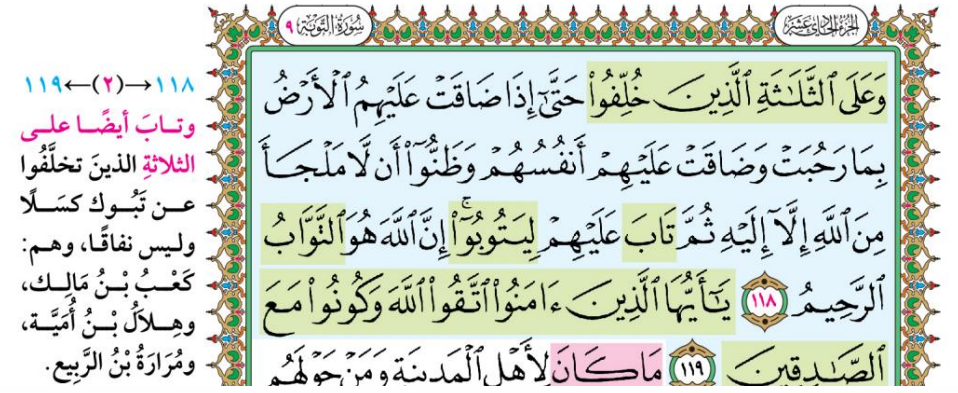 الجزء الحادي عشر
سورة التوبة ٩
وَعَلَى ٱلثَّلَٰثَةِ ٱلَّذِينَ خُلِّفُوا۟ حَتَّىٰٓ إِذَا ضَاقَتْ عَلَيْهِمُ ٱلْأَرْضُ
بِمَا رَحُبَتْ وَضَاقَتْ عَلَيْهِمْ أَنفُسُهُمْ وَظَنُّوٓا۟ أَن لَّا مَلْجَأَ
مِنَ ٱللَّهِ إِلَّآ إِلَيْهِ ثُمَّ تَابَ عَلَيْهِمْ لِيَتُوبُوٓا۟ ۚ إِنَّ ٱللَّهَ هُوَ ٱلتَّوَّابُ
ٱلرَّحِيمُ ١١٨ يَٰٓأَيُّهَا ٱلَّذِينَ ءَامَنُوا۟ ٱتَّقُوا۟ ٱللَّهَ وَكُونُوا۟ مَعَ
ٱلصَّٰدِقِينَ ١١٩ مَا كَانَ لِأَهْلِ ٱلْمَدِينَةِ وَمَنْ حَوْلَهُم
١١٨←(٢)→١١٩
وتـابَ أيضًـا علـى
الثلاثةِ الذينَ تخلَّفُوا
عـن تَبُـوك كسَـلًا
وليـس نفاقًـا، وهـم:
كَعْـبُ بْـنُ مَالِـك،
وهِـلَالُ بْـنُ أُمَيَّـة،
ومُرَارَةُ بْنُ الرَّبِيع.